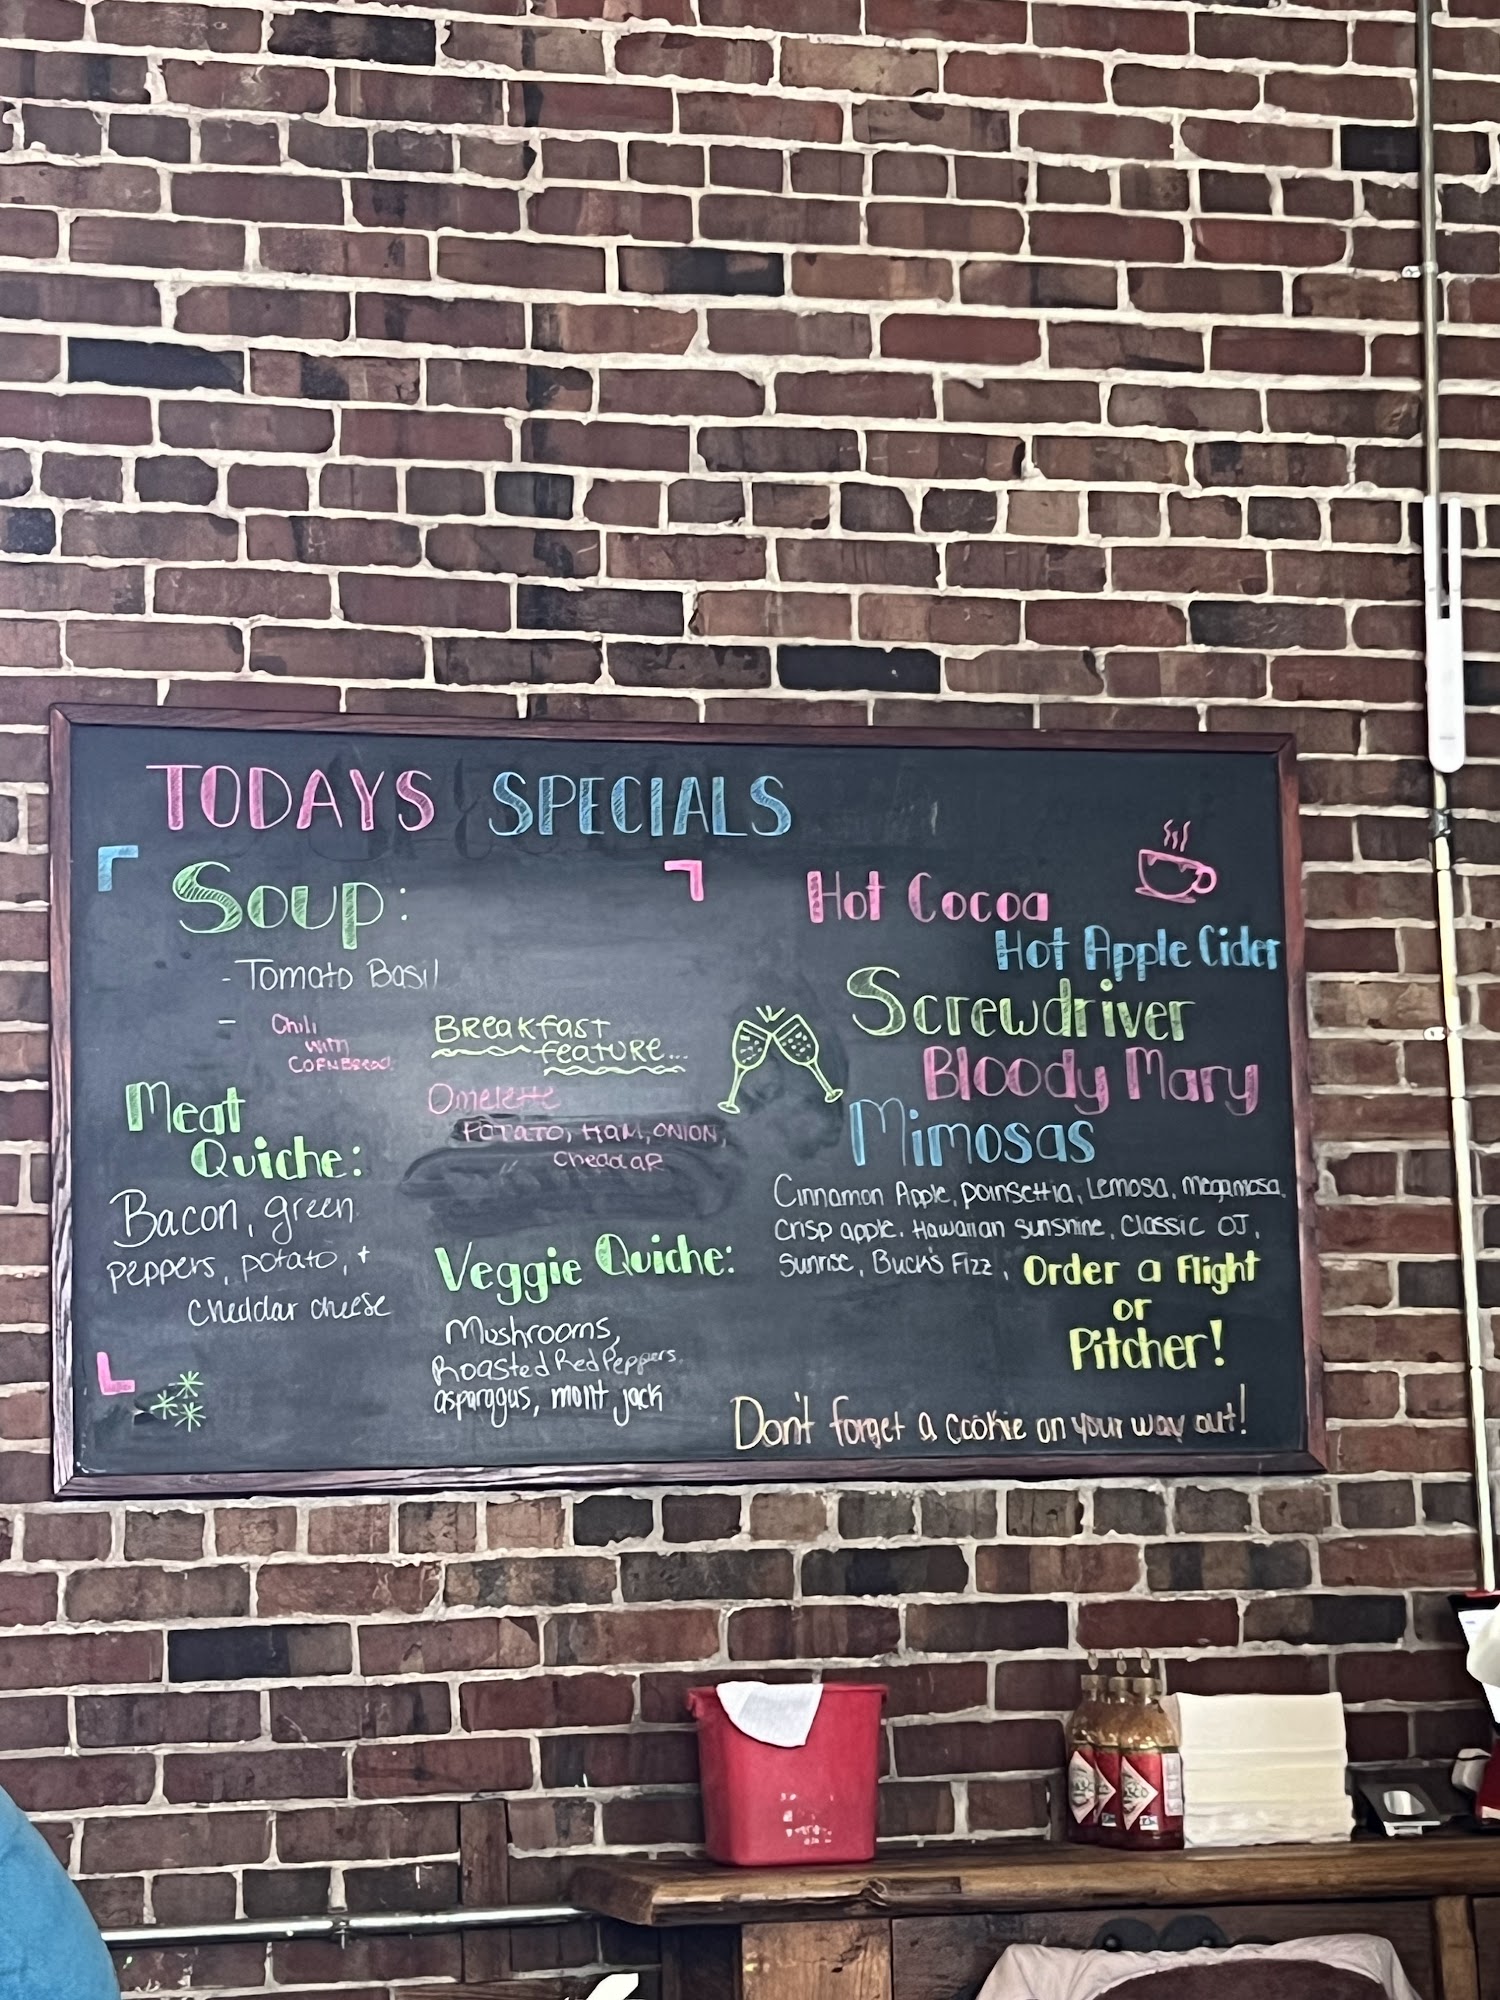 TODAYS SPECIALS
Soup:
- Tomato Basil
- Chili
with
CORNBREAD
Meat
Quiche:
Bacon, green
peppers, potato, +
cheddar cheese
Breakfast
feature...
Omelette
POTATO, HAM, ONION,
cheddar
Veggie Quiche:
Mushrooms,
Roasted Red Peppers,
asparagus, mont jack
Hot Cocoa
Hot Apple Cider
Screwdriver
Bloody Mary
Mimosas
Cinnamon Apple, poinsettia, Lemosa, megamosa,
crisp apple, Hawaiian sunshine, Classic OJ,
Sunrise, Buck's Fizz,
Order a Flight
or
Pitcher!
Don't forget a cookie on your way out!